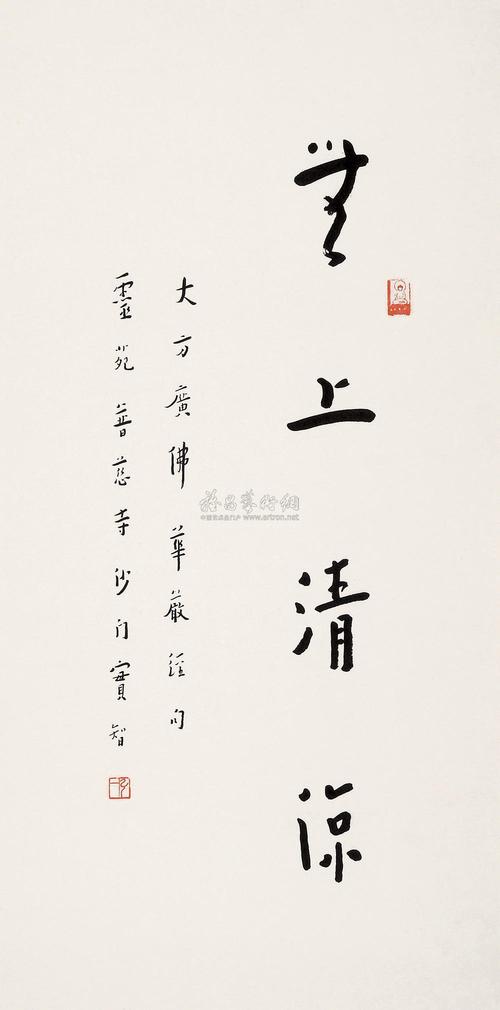 無上清涼
大方廣佛華嚴經句
靈苑普慈寺沙门實智
雅昌藝術網
中国艺术品门户 www.artron.net